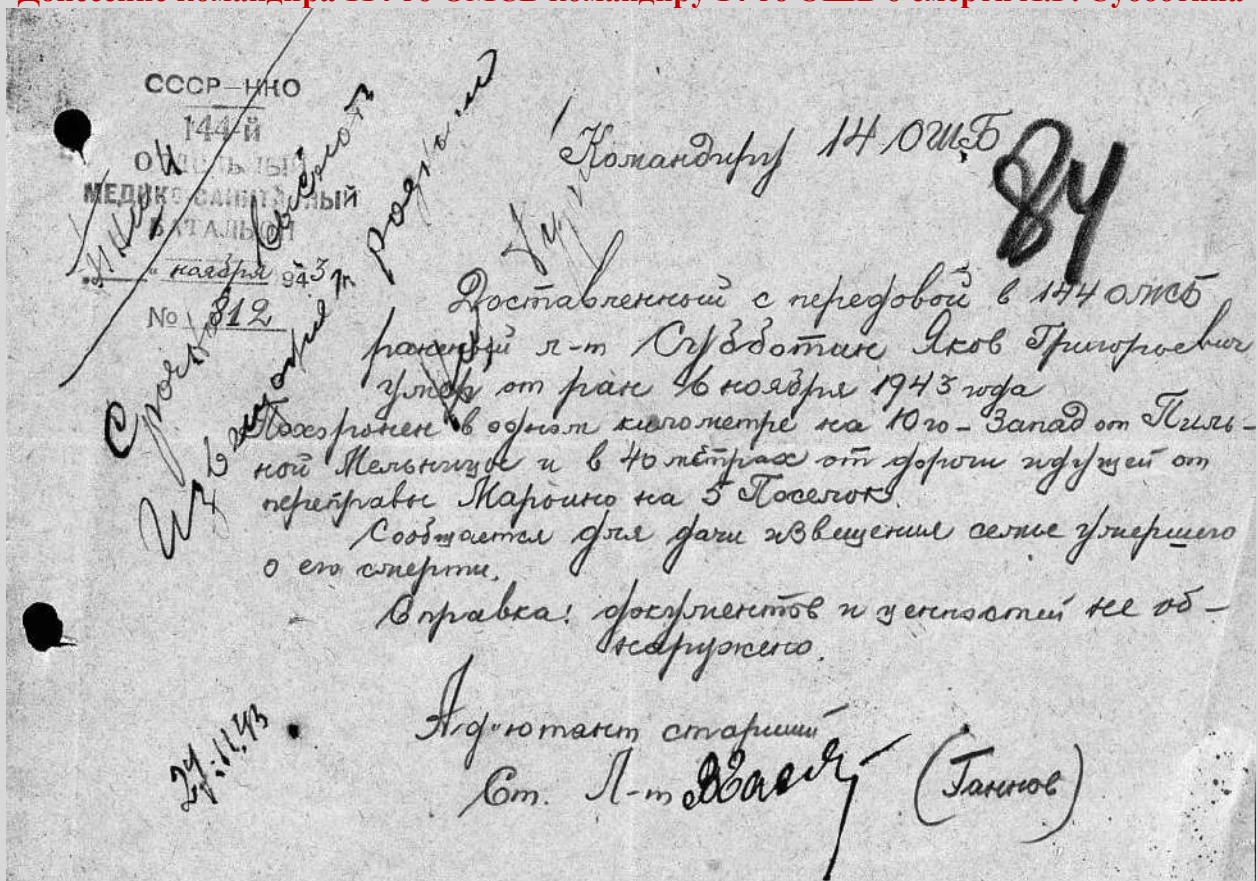 СССР-НКО
144-й
ОТДЕЛЬНЫЙ
МЕДИКО-САНИТАРНЫЙ
БАТАЛЬОН
ноября 1943 г.
№ 812
Командиру 14 ОШБ
84
Срочно выслать
Извещения родным
Доставленный с передовой в 144 ОМСБ
раненый л-т Субботин Яков Григорьевич
умер от ран 6 ноября 1943 года
Похоронен в одном километре на Юго-Запад от Пиль-
ной Мельницы и в 40 метрах от дороги идущей от
переправы Марьино на 5 Поселок.
Сообщается для дачи извещения семье умершего
о его смерти.
Справка: документов и ценностей не об-
наружено.
Адъютант старший
Ст. Л-т (Таннов)
27.11.43